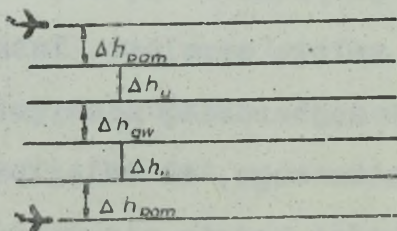 Δh pom
Δh u
Δh gw
Δh u
Δh pom